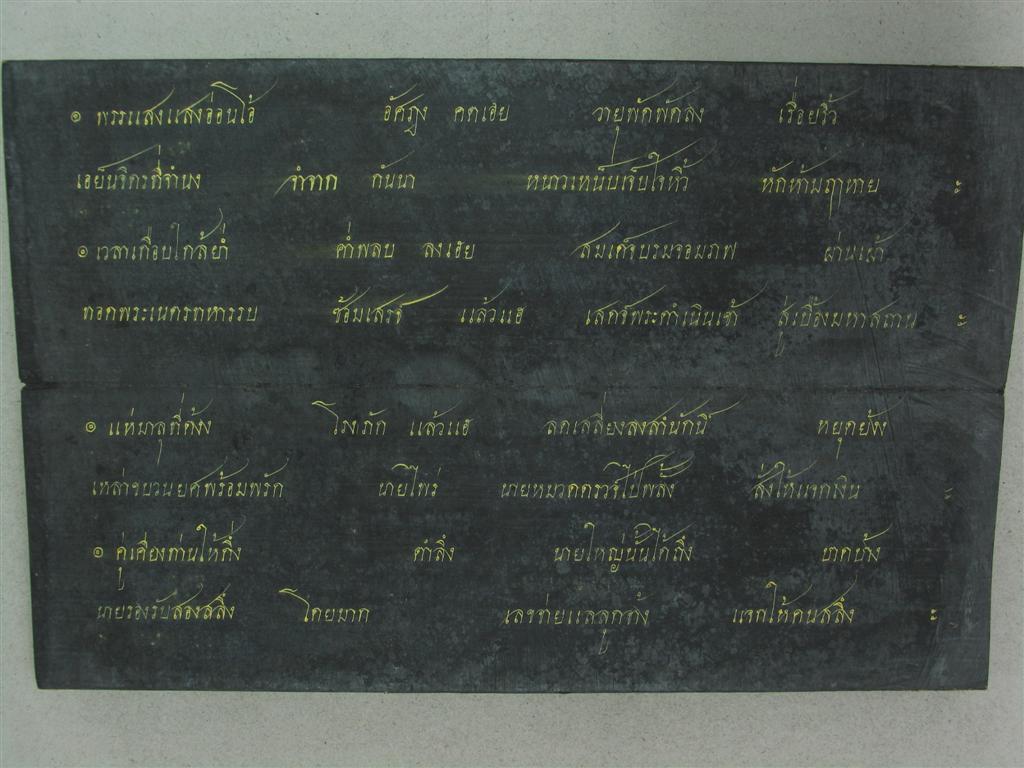 ๏ พรรแสงแสงอ่อนโอ้ อัศฎง คตเอย วายุพัดพัดลง เรื่อยริ้ว
เอยันจิตรที่จำนง จำจาก กันนา หนาวเหน็บเจ็บใจหิ้ว หักห้ามฤๅหาย ะ
๏ เวลาเกือบใกล้ย่ำ ค่ำพลบ ลงเอย สมเด็จบรมจอมภพ ผ่านเผ้า
ทอดพระเนตรทหารรบ ซ้อมเสรจ์ แล้วแฮ เสดจ์พระดำเนินเต้า สู่เบื้องมหาสถาน ะ
๏ แห่มาสุดที่ค้าง โรงภัก แล้วแฮ ลดเลี่ยงลงสำนักนิ์ หยุดยั้ง
เหล่าขบวนยศพร้อมพรัก นายไพร่ นายหมวดตรวจไปพลั้ง สั่งให้แจกเงิน ะ
๏ คู่เคียงท่านให้กึ่ง ตำลึง นายใหญ่นั้นได้ถึง บาดบ้าง
นายรองรับสองสลึง โดยมาก เลขจ่ายแลลูกจ้าง แจกให้คนสลึง ะ